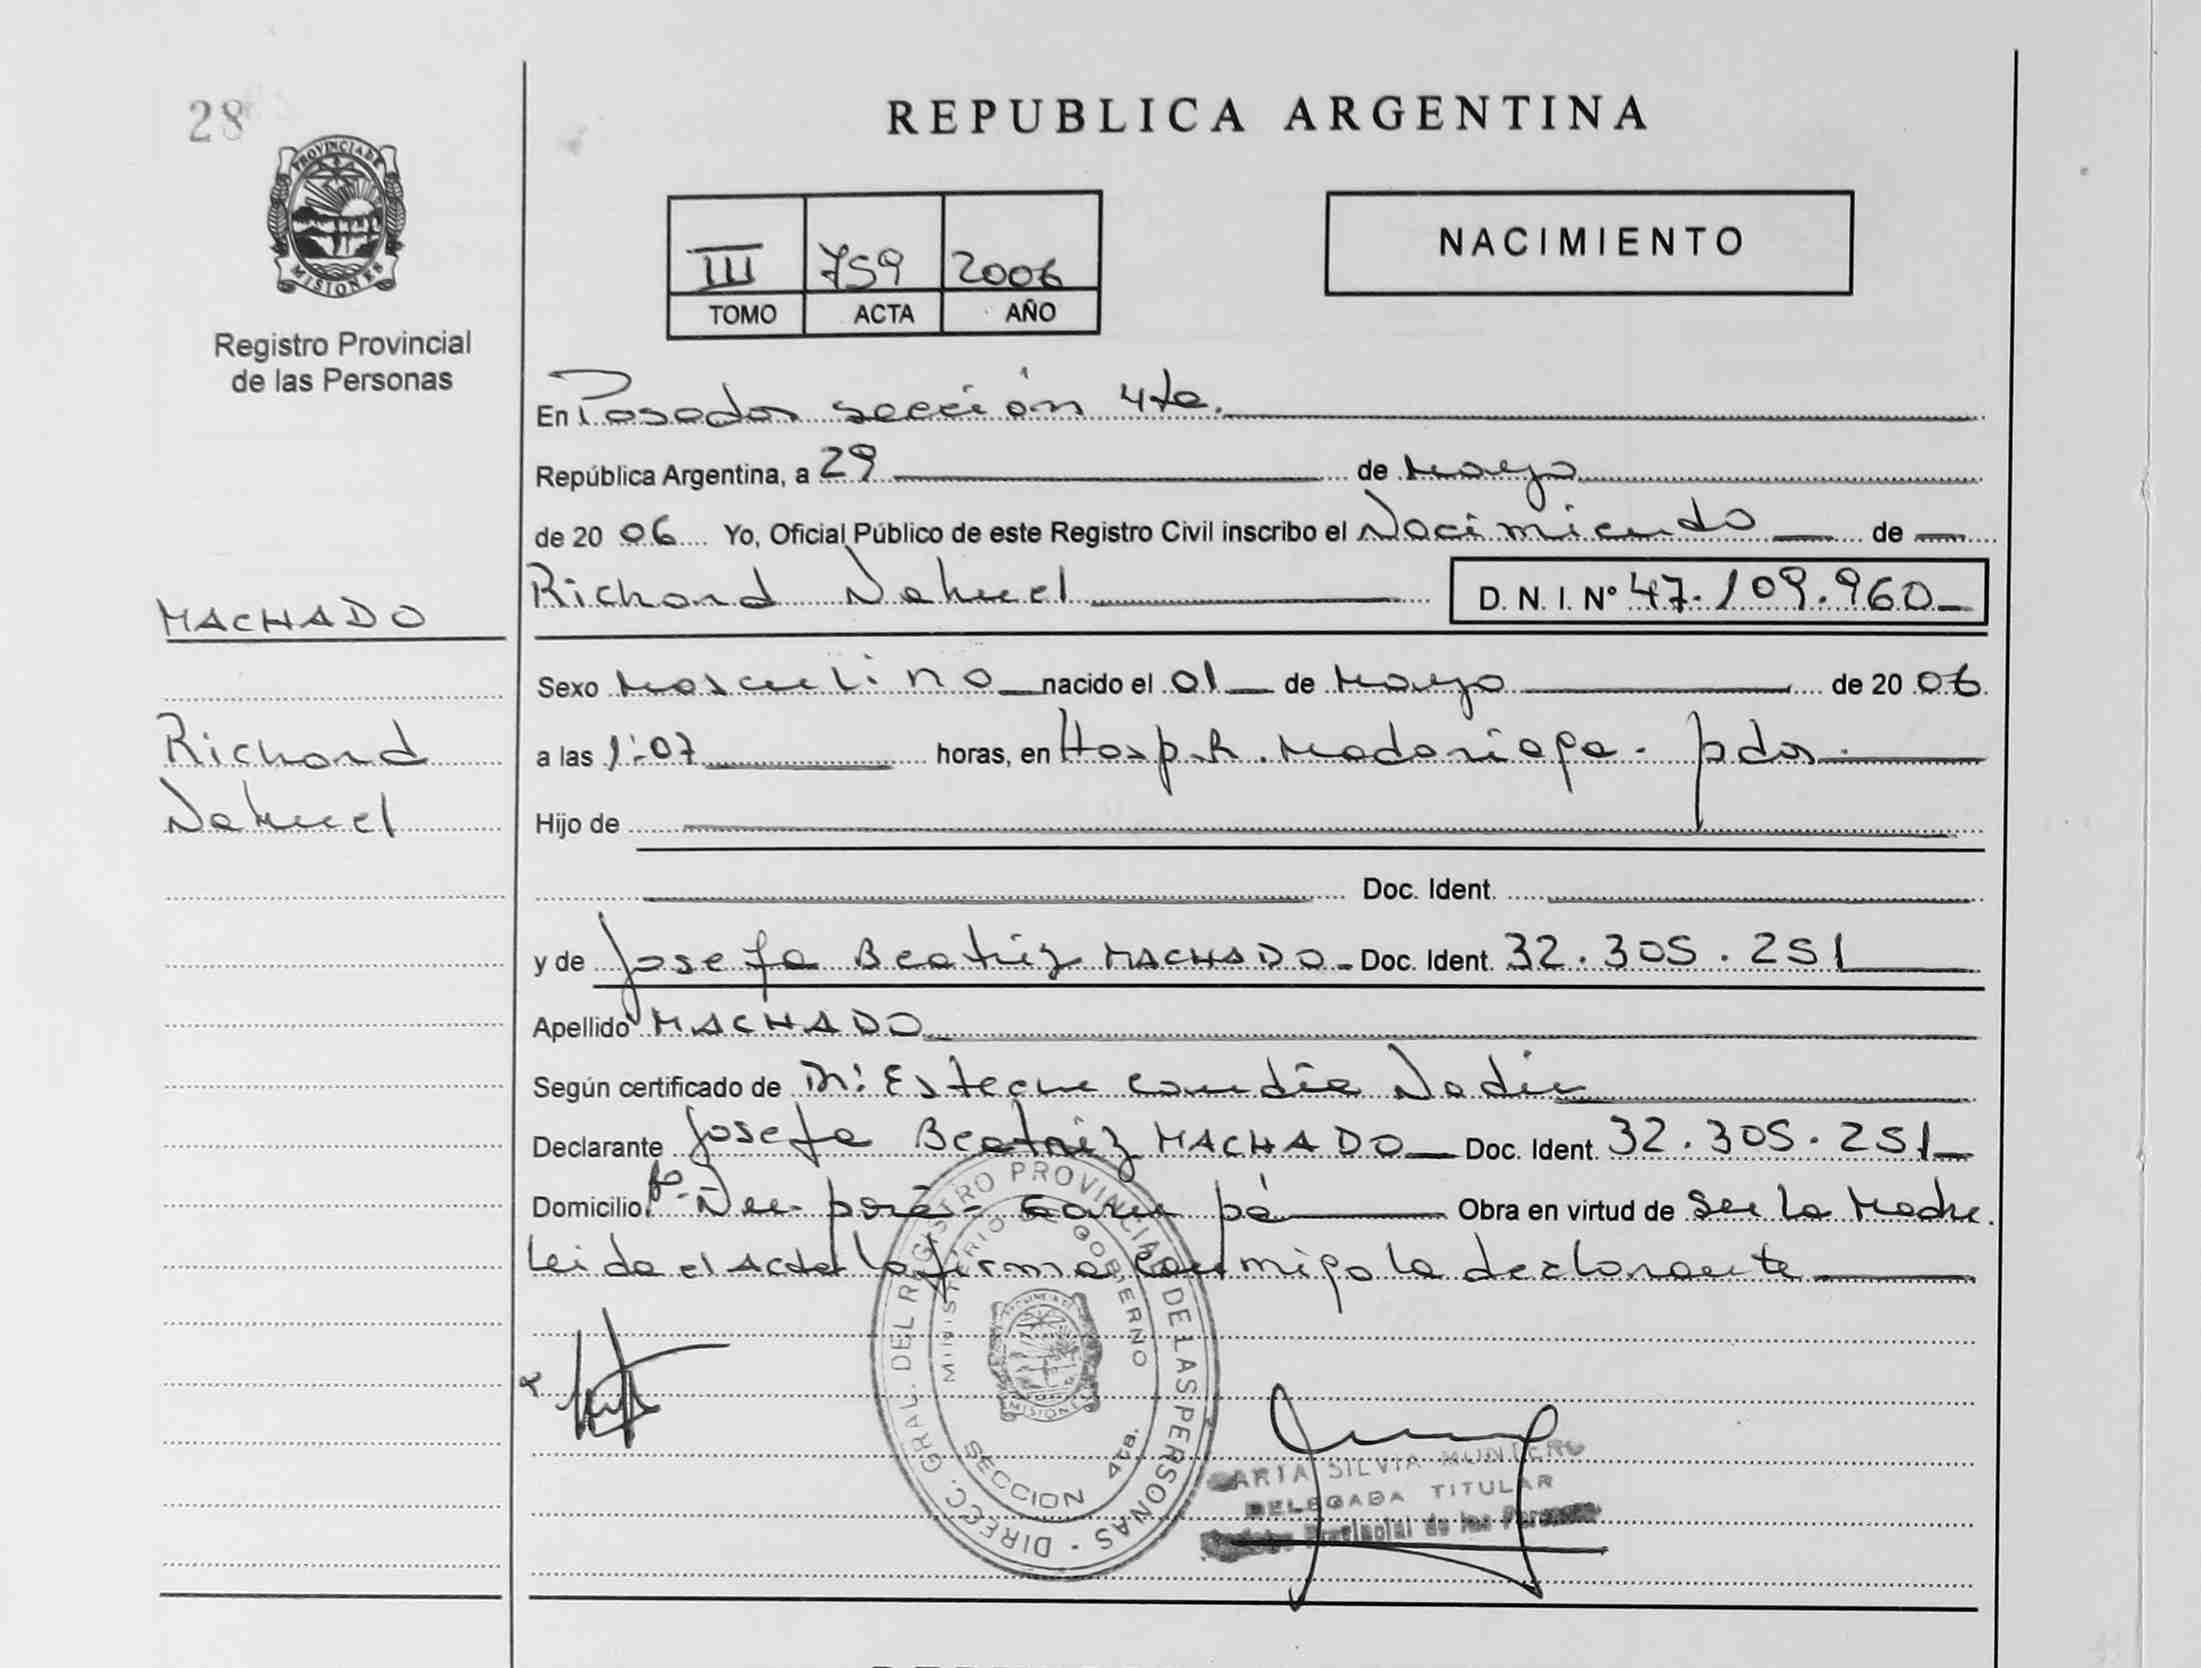 28
REPUBLICA ARGENTINA
PROVINCIA DE
MISIONES
Registro Provincial
de las Personas
III 759 2006
TOMO ACTA AÑO
NACIMIENTO
En Posadas sección 4ta.
República Argentina, a 29 de Mayo
de 2006 Yo, Oficial Público de este Registro Civil inscribo el Nacimiento de
Richard Nahuel D. N. I. Nº 47.109.960
MACHADO
Sexo Masculino nacido el 01 de Mayo de 2006
Richard
a las 1:07 horas, en Hosp. R. Madariaga - pdas.
Nahuel
Hijo de
Doc. Ident.
y de Josefa Beatriz MACHADO Doc. Ident. 32.305.251
Apellido MACHADO
Según certificado de Nadia
Declarante Josefa Beatriz MACHADO Doc. Ident. 32.305.251
Domicilio Obra en virtud de ser la Madre.
Leida el Acta la firma conmigo la declarante
DIRECC. GRAL. DEL REGISTRO PROVINCIAL DE LAS PERSONAS
MINISTERIO DE GOBIERNO
PROVINCIA DE
MISIONES
SECCION 4ta.
MARIA SILVIA
DELEGADA TITULAR
Registro Provincial de las Personas